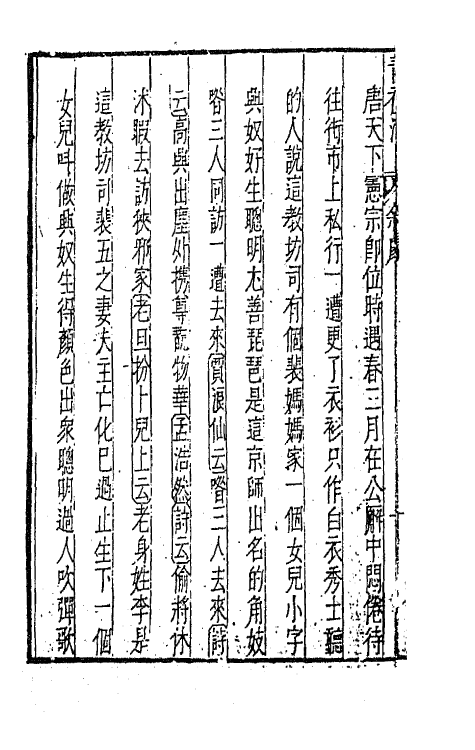 唐天下憲宗即位時遇春三月在公廨中悶倦待
往街市上私行一遭更了衣衫只作白衣秀士聽
的人說這教坊司有個裴媽媽家一個女兒小字
興奴好生聰明尤善琵琶是這京師出名的角妓
喒三人同訪一遭去來賈浪仙云喒三人去來詩
云高興出塵外携尊翫物華孟浩然詩云偷將休
沐暇去訪狹邪家老旦扮卜兒上云老身姓李是
這教坊司裴五之妻夫主亡化已過止生下一個
女兒叫做興奴生得顏色出衆聰明過人吹彈歌